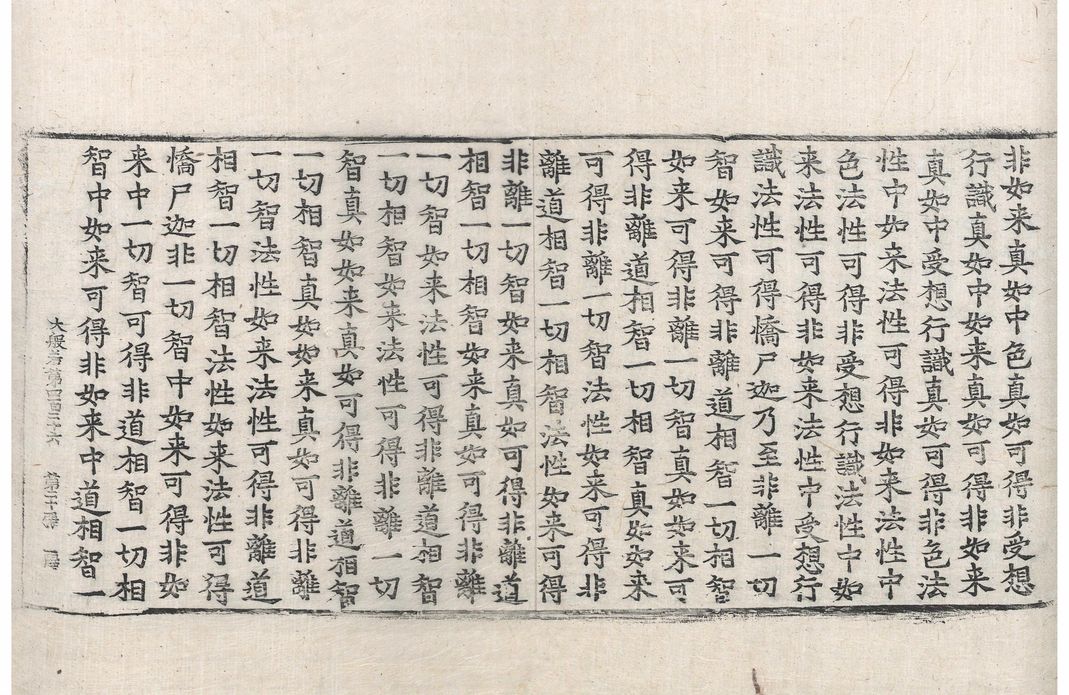 非如来真如中色真如可得非受想
行識真如中如来真如可得非如来
真如中受想行識真如可得非色法
性中如来法性可得非如来法性中
色法性可得非受想行識法性中如
来法性可得非如来法性中受想行
識法性可得憍尸迦乃至非離一切
智如来可得非離道相智一切相智
如来可得非離一切智真如如来可
得非離道相智一切相智真如如来
可得非離一切智法性如来可得非
離道相智一切相智法性如来可得
非離一切智如来真如可得非離道
相智一切相智如来真如可得非離
一切智如来法性可得非離道相智
一切相智如来法性可得非離一切
智真如如来真如可得非離道相智
一切相智真如如来真如可得非離
一切智法性如来法性可得非離道
相智一切相智法性如来法性可得
憍尸迦非一切智中如来可得非如
来中一切智可得非道相智一切相
智中如来可得非如来中道相智一
大般若第四百三十六 第二十